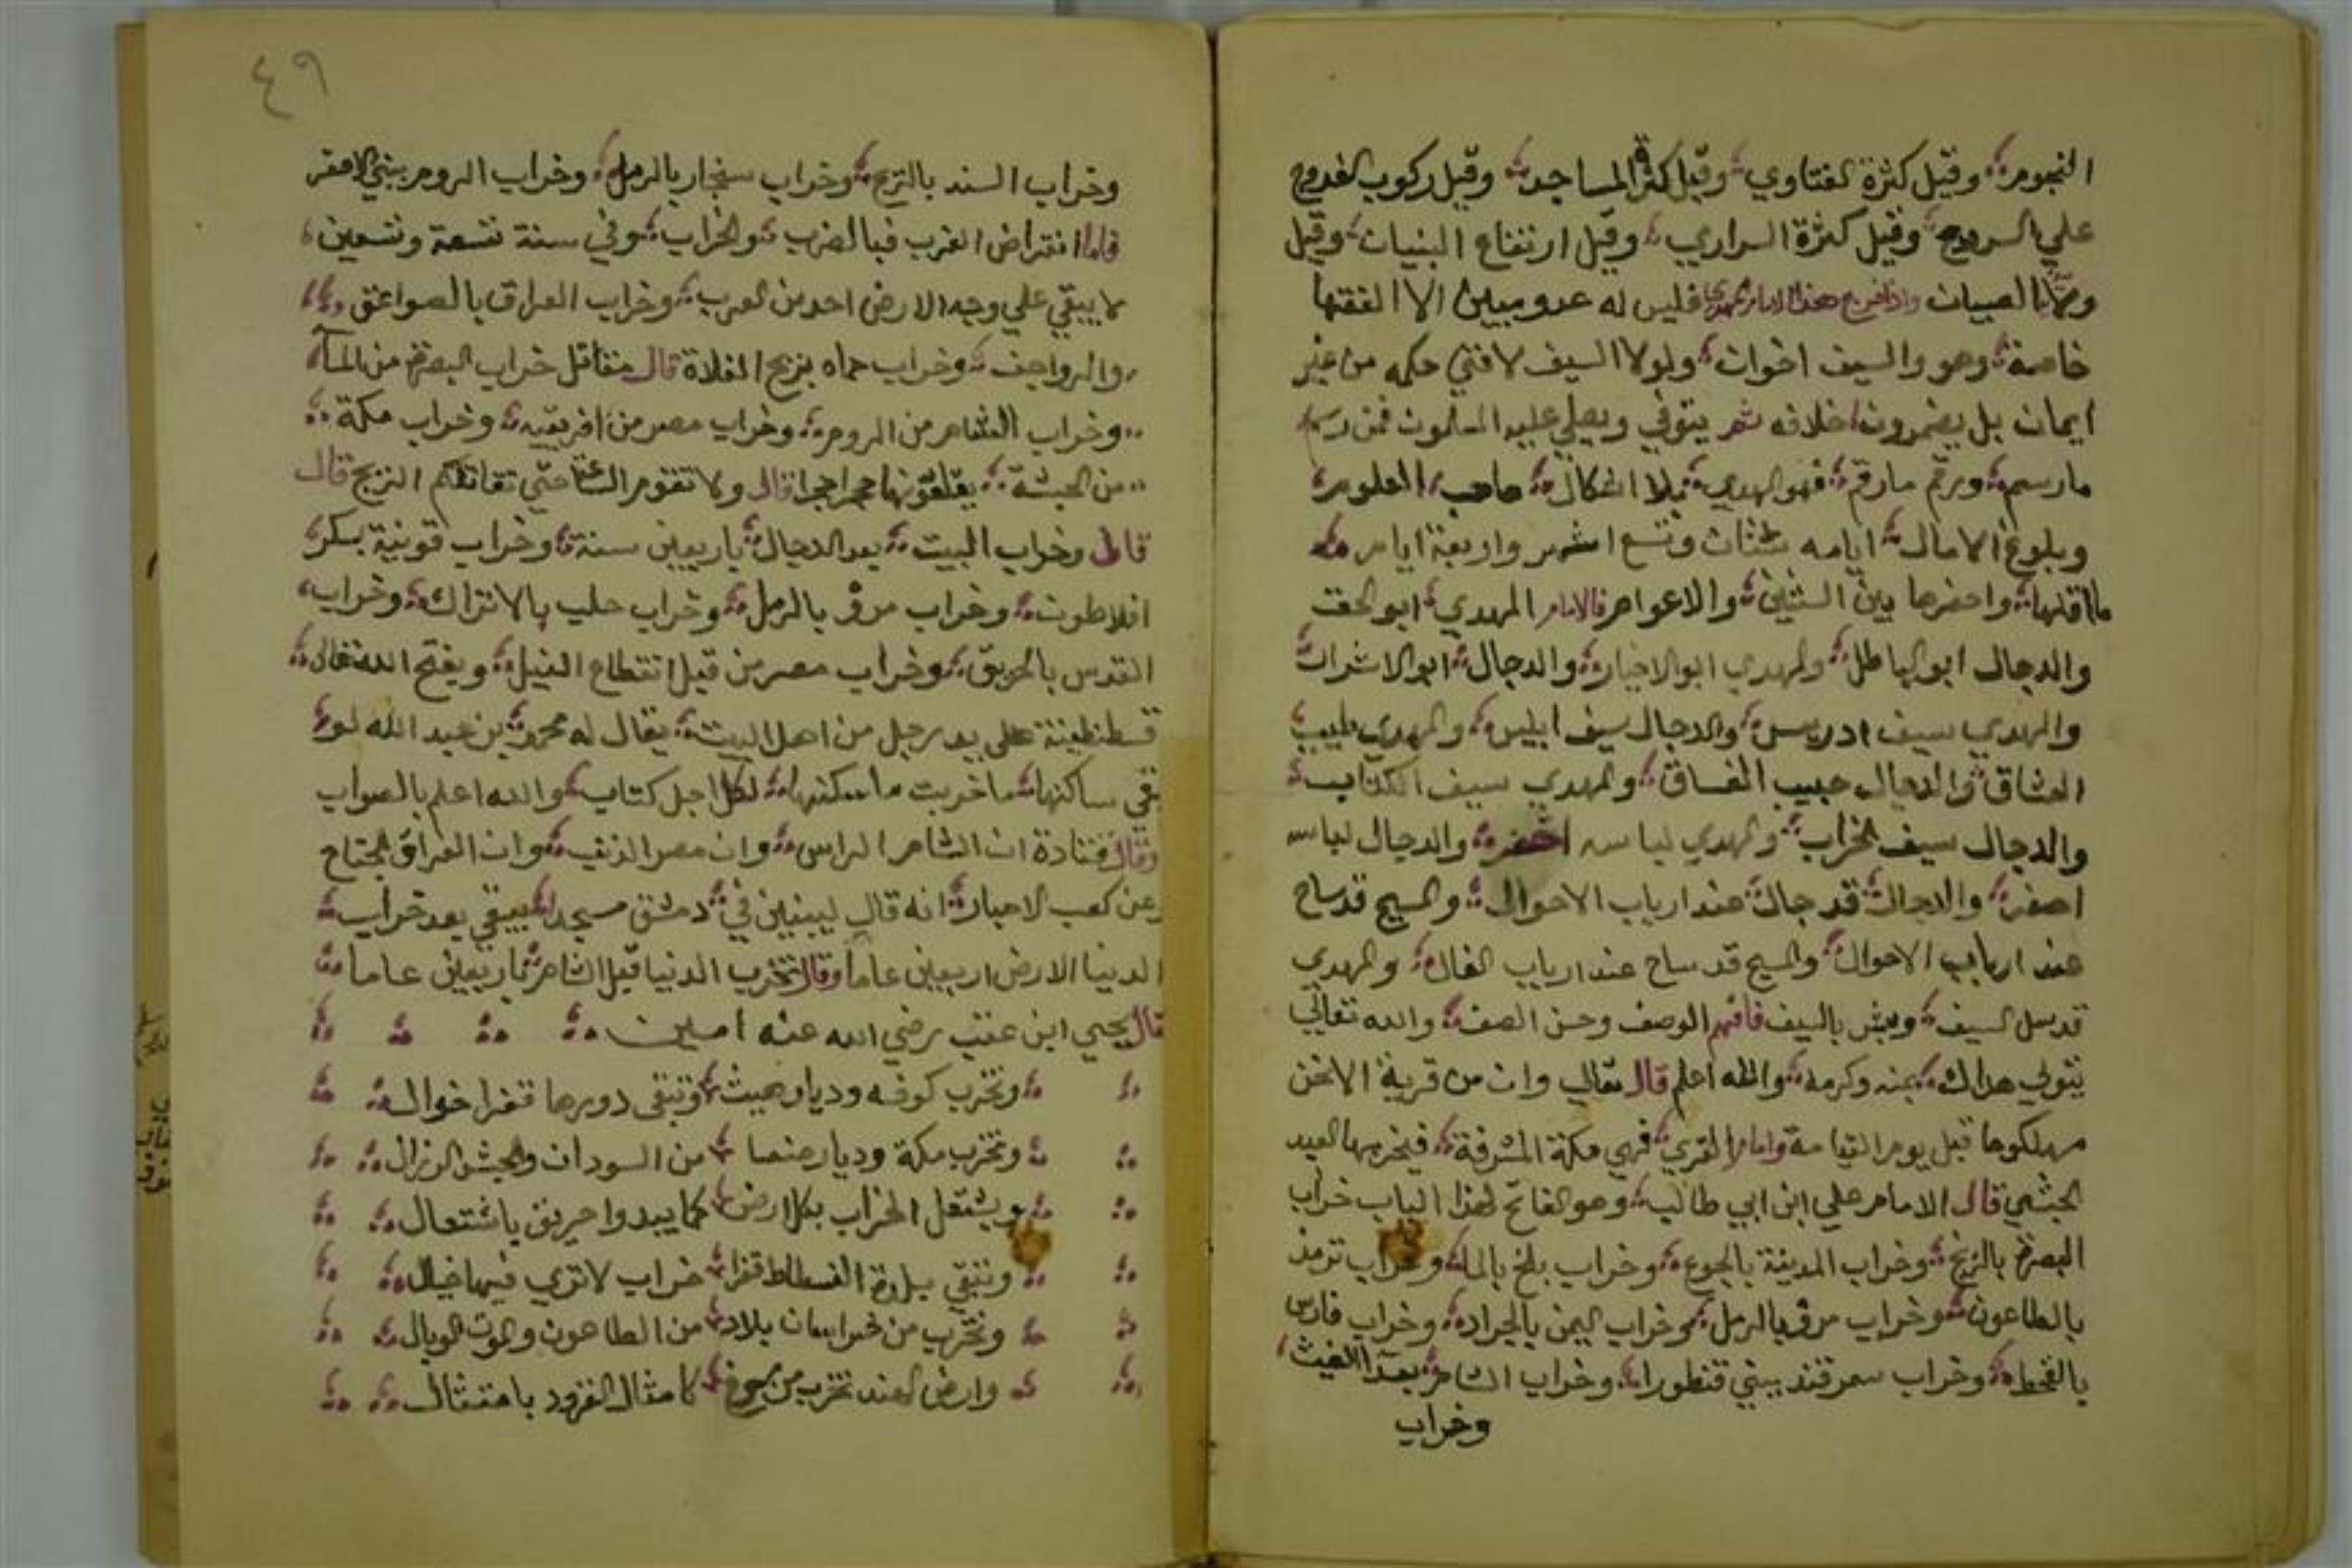 النجوم وقيل كثرة الفتاوي وقيل كثرة المساجد وقيل ركوب الفروج
علي السروج وقيل كثرة السراري وقيل ارتفاع البنيان وقيل
الصبيان واذا خرج هذا الامام المهدي فليس له عدو مبين الا الفقها
خاصة وهو والسيف اخوان ولولا السيف لافتي حكمه من غير
ايمان بل يضمرون خلافه ثم يتوفي ويصلي عليه المسلمون فمن رسم
مارسم ورقم مارقم فهو المهدي بلا اشكال صاحب العلوم
وبلوغ الامال ايامه سنتان وتسع اشهر واربعة ايام
مااقلها واحضرها بين السنين والاعوام فالامام المهدي ابو الحق
والدجال ابو الباطل والمهدي ابو الاخيار والدجال ابو الاشرار
والمهدي سيف ادريس والدجال سيف ابليس والمهدي طبيب
العشاق والدجال حبيب الفساق والمهدي سيف الكتاب
والدجال سيف الخراب والمهدي لباسه اخضر والدجال لباسه
اصفر والدجال قد جال عند ارباب الاحوال والمسيح قد ساح
عند ارباب الاحوال والمسيح قد ساح عند ارباب القال والمهدي
قد سل السيف وبش بالسيف فافهم الوصف وحسن الصف والله تعالي
يتولي هداك بمنه وكرمه والله اعلم قال تعالي وان من قرية الا نحن
مهلكوها قبل يوم القيامة واما ام القري فهي مكة المشرفة فيخربها العبد
الحبشي قال الامام علي ابن ابي طالب وهو الفاتح لهذا الباب خراب
البصرة بالزنج وخراب المدينة بالجوع وخراب بلخ بالما وخراب ترمذ
بالطاعون وخراب مرو بالرمل وخراب اليمن بالجراد وخراب فارس
بالقحط وخراب سمرقند ببني قنطورا وخراب الشام بعد الغيث
وخراب
٤٩
وخراب السند بالريح وخراب سنجار بالرمل وخراب الروم ببني الاصفر
فاما انقراض العرب فبالضرب والخراب وفي سنة تسعة وتسعين
لا يبقي علي وجه الارض احد من العرب وخراب العراق بالصواعق
والرواجف وخراب حماه بزيح الفلاة قال مقاتل خراب البصرة من الما
وخراب الشام من الروم وخراب مصر من افريقيه وخراب مكة
من الحبشة يقلعونها حجرا حجرا قال ولا تقوم الساعة حتي تقاتلكم الزنج قال
قال وخراب البيت بعد الدجال باربعين سنة وخراب قونية بسكر
افلاطون وخراب مرو بالرمل وخراب حلب بالاتراك وخراب
القدس بالحريق وخراب مصر من قبل انقطاع النيل ويفتح الله تعالى
قسطنطينة علي يد رجل من اهل البيت يقال له محمد بن عبد الله لو
بقي ساكنها ماخربت مساكنها لكل اجل كتاب والله اعلم بالصواب
وقال قتادة ان الشام الراس وان مصر الذنب وان العراق الجناح
وعن كعب الاحبار انه قال ليبنين في دمشق مسجد يبقي بعد خراب
الدنيا الارض اربعين عاما وقال تخرب الدنيا قبل الشام باربعين عاما
قال يحيي ابن عقب رضي الله عنه امين
وتخرب كوفه وديار هيت وتبقي دورها قفرا خوال
وتخرب مكة وديار صنعا من السودان والحبش الرذال
ويشتعل الخراب بكل ارض كما يبدوا حريق باشتعال
وتبقي بلدة الفسطاط قفرا خراب لا تري فيها خيال
وتخرب من خراسان بلاد من الطاعون والموت الوبال
وارض الهند تخرب من جوع كامثال القرود بامتثال